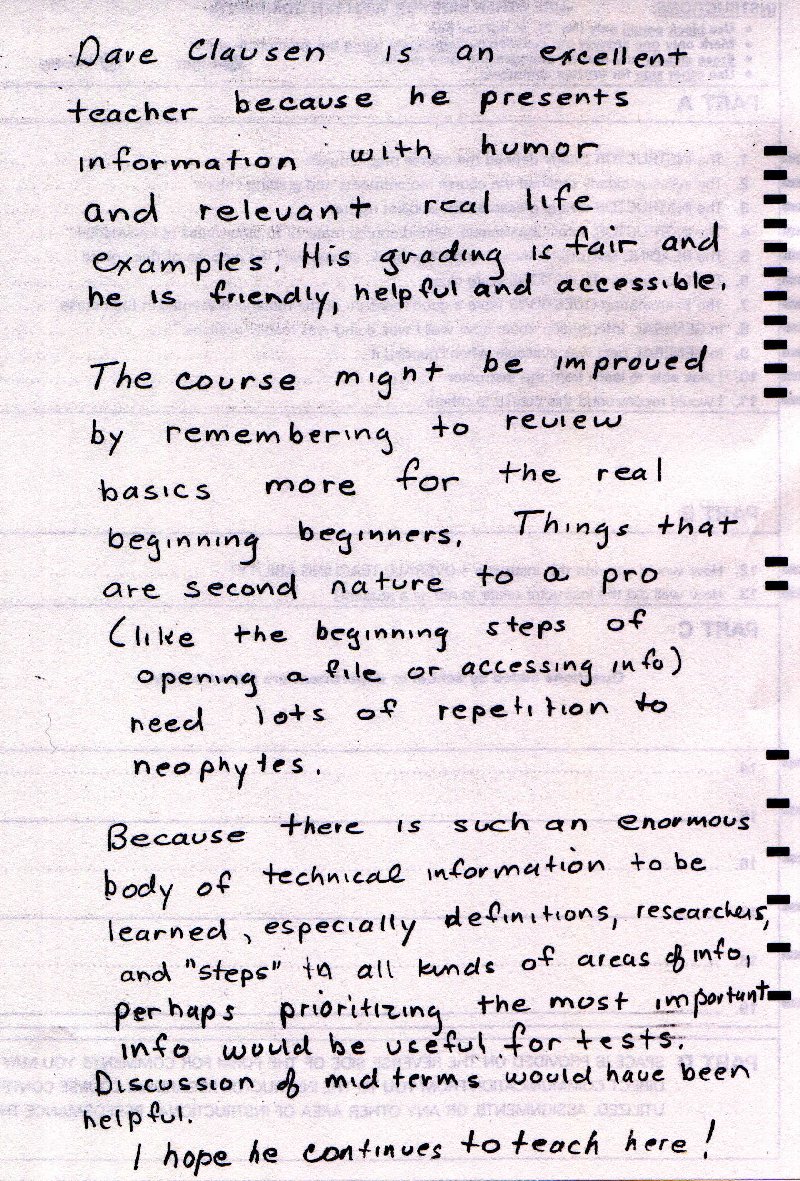 Dave Clausen is an excellent
teacher because he presents
information with humor
and relevant real life
examples. His grading is fair and
he is friendly, helpful and accessible.
The course might be improved
by remembering to review
basics more for the real
beginning beginners. Things that
are second nature to a pro
(like the beginning steps of
opening a file or accessing info)
need lots of repetition to
neophytes.
Because there is such an enormous
body of technical information to be
learned, especially definitions, researchers,
and "steps" in all kinds of areas of info,
perhaps prioritizing the most important
info would be useful for tests.
Discussion of midterms would have been
helpful.
I hope he continues to teach here!